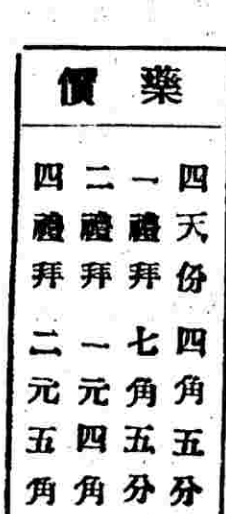 藥價
四天份 四角五分
一禮拜 七角五分
二禮拜 一元四角
四禮拜 二元五角